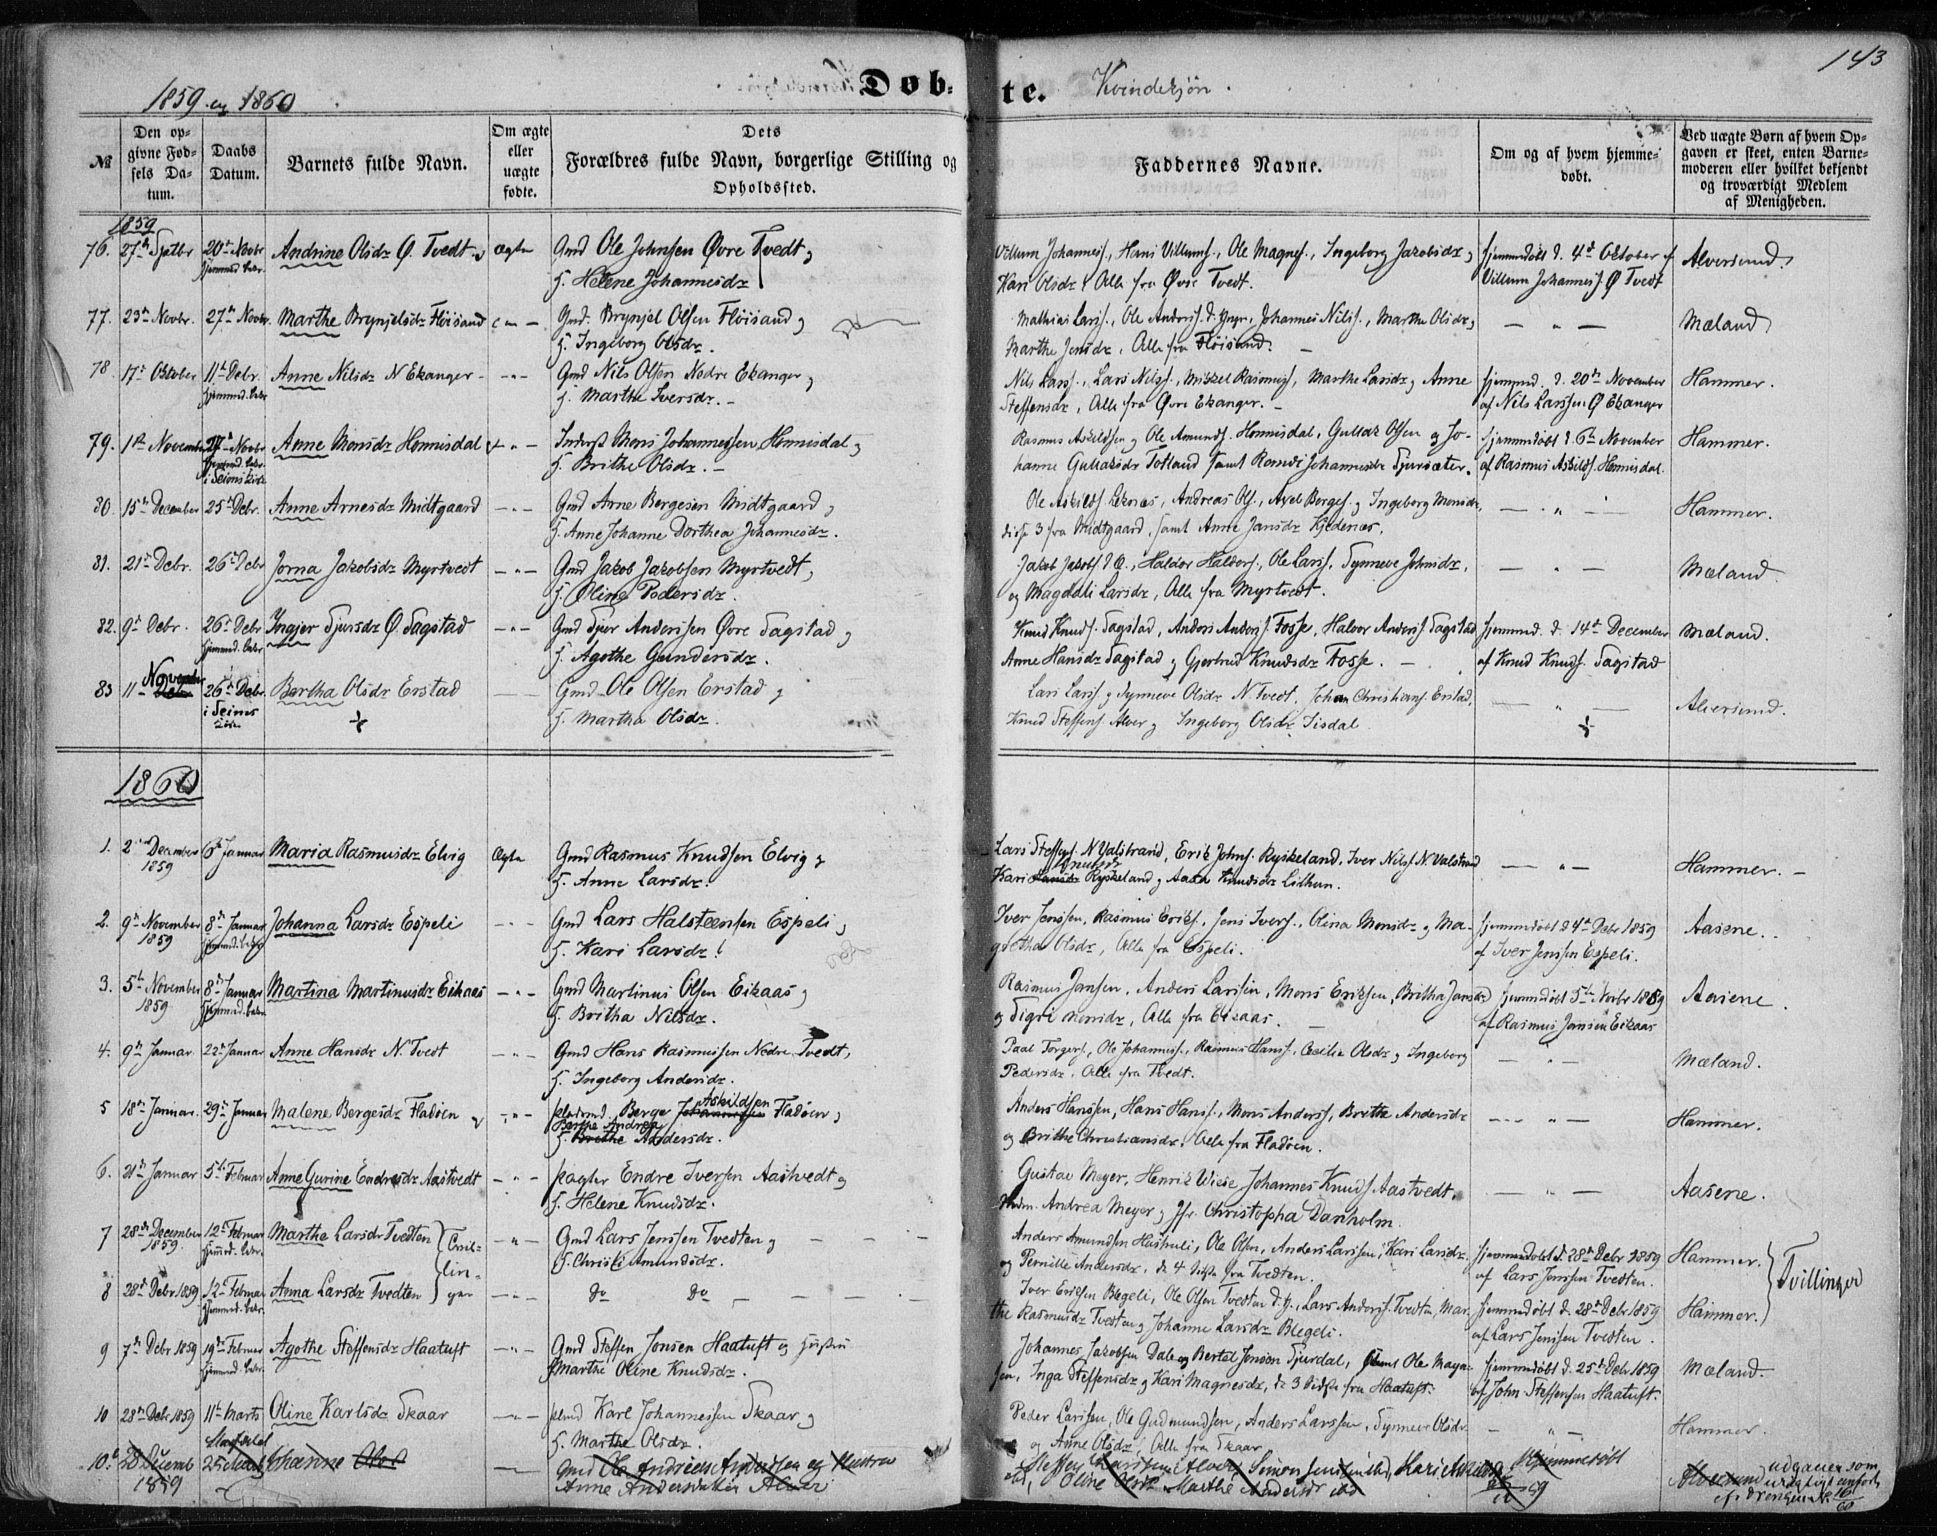 143
1859 og 1860
Døb- te. Kvindekjøn.
№
Den opgivne Fødsels Datum.
Daabs Datum.
Barnets fulde Navn.
Om ægte eller uægte fødte.
Dets Forældres fulde Navn, borgerlige Stilling og Opholdssted.
Faddernes Navne.
Om og af hvem hjemmedøbt.
Ved uægte Børn af hvem Opgaven er skeet, enten Barnemoderen eller hvilket bekjendt og troværdigt Medlem af Menigheden.
1859
76. 27de Septbr 20de Novbr Andrine Olsdr Ø. Tvedt Ægte Gmd Ole Johnsen Øvre Tvedt og Villum Johanness., Hans Villums., Ole Magnes., Ingeborg Jacobsdr, Hjemmedøbt d. 4de Oktober af Alversund.
H. Helene Johannesdr Kari Olsdr, Alle fra Øvre Tvedt. Villum Johanness. Ø Tvedt
77. 23de Novbr. 27de Novbr. Marthe Brynjelsdr Fløisand Gmd. Brynjel Olsen Fløisand og Mathias Larss., Ole Anders. d. Yngr., Johannes Nilss., Marthe Olsdr, — " — Mæland
H. Ingeborg Olsdr. Marthe Jensdr, Alle fra Fløisand.
78. 17de Oktober 11te Debr. Anne Nilsdr N Ekanger — " — Gmd Nils Olsen Nedre Ekanger og Nils Larss., Lars Nilss., Mikkel Rasmuss., Marthe Larsdr og Anne Hjemmd. d. 20de November Hammer.
H. Marthe Iversdr. Steffensdr, Alle fra Øvre Ekanger. af Nils Larssen Ø Ekanger
79. 1ste November 27de Novbr Anne Monsdr Hennisdal — " — Inderst Mons Johannessen Hennisdal og Rasmus Askildsen og Ole Amunds. Hennisdal, Gullak Olsen og Jo- Hjemmedøbt d. 6te November Hammer.
i Seims Kirke H. Brithe Olsdr. hanne Gullaksdr Totland samt Johannesdr af Rasmus Askilds. Hennisdal.
80. 15de December 25de Debr. Anne Arnesdr Midtgaard — " — Gmd Arne Bergesen Midtgaard og Ole Askilds. , Andreas Ols., Axel Berges. og Ingeborg Monsdr, — " — Hammer.
H. Anne Johanne Dorthea Johannesdr. disse 3 fra Midtgaard, samt Anne Jansdr .
81. 21de Debr. 26de Debr Jorna Jakobsdr Myrtvedt — " — Gmd Jakob Jakobsen Myrtvedt, Jakob Jakobs. d. Æ., Haldor Haldors., Ole Larss., Synneve Johnsdr, — " — Mæland.
H. Oline Pedersdr. og Magdeli Larsdr, Alle fra Myrtvedt.
82. 9de Debr. 26de Debr Ingjer Sjursdr Ø Sagstad — " — Gmd Sjur Anderssen Øvre Sagstad og Knud Knuds. Sagstad, Anders Anders. Fosse, Halvor Anders. Sagstad Hjemmd. d. 14de December Mæland.
H. Agothe Gundersdr. Anne Hansdr Sagstad og Gjertrud Knudsdr Fosse. af Knud Knuds. Sagstad
83 11te November 26de Debr Bertha Olsdr Erstad — Gmd Ole Olsen Erstad og Lars Larss. og Synneve Olsdr N Tvedt, Johan Christians. Erstad, — " — Alversund.
i Seims Kirke H. Martha Olsdr. Knud Steffens. Alver og Ingeborg Olsdr Sisdal
1860
1. 2den December 1859 6te Januar Maria Rasmusdr Elvig Ægte Gmd Rasmus Knudsen Elvig og Lars Steffens. N Valstrand, Erik Johns. Ryskeland, Iver Nilss. N. Valstrand — " — Hammer.
H. Anne Larsdr. Kari Knudsdr Ryskeland og Knudsdr Lidhun.
2. 9de November 1859 8de Januar Johanna Larsdr Espeli — " — Gmd Lars Halsteensen Espeli, Iver Jenssen, Rasmus Eriks., Jens Ivers., Olina Monsdr og Ma- Hjemmedøbt d. 4de Debr 1859 Aasene.
H. Kari Larsdr. Olsdr, Alle fra Espeli. af Iver Jenssen Espeli.
3. 5te November 1859 8de Januar Martina Martinusdr Eikaas — " — Gmd Martinus Olsen Eikaas og Rasmus Jansen, Anders Larssen, Mons Eriksen, Britha Jansdr Hjemmedøbt 5te Novbr 1859 Aasene
H. Britha Nilsdr. og Sigri Monsdr, Alle fra Eikaas. af Rasmus Jansen Eikaas
4. 9de Januar 22de Januar Anne Hansdr N. Tvedt — " — Gmd Hans Rasmussen Nedre Tvedt, Paal Torgers., Ole Johanness., Rasmus Hanss., Cecilie Olsdr og Ingeborg — " — Mæland.
H. Ingeborg Andersdr. Pedersdr. Alle fra Tvedt.
5 18de Januar. 29de Januar Malene Bergesdr Fladøen — " — Pladsmd Berge Johannessen Askildsen Fladøen, Anders Hanssen, Hans Hanss., Mons Anders., Brithe Andersdr — " — Hammer.
H. Brithe Berthe Andrea Andersdr. og Brithe Christiansdr, Alle fra Fladøen.
6. 21de Januar 5te Februar Anne Gurine Endresdr Aastvedt — " — Pagter Endre Iversen Aastvedt og Gustav Meyer, Henrik Wiese, Johannes Knuds. Aastvedt, — " — Aasene.
H. Helene Knudsdr. Mdm. Andrea Meyer og Jfr. Christopha Danholm.
7 28de December 1859. 12te Februar Marthe Larsdr Tvedten Tvillinger — " — Gmd Lars Jenssen Tvedten og Anders Amundsen , Ole Olsen, Anders Larssen, Kari Larsdr Hjemmedøbt d. 28de Debr 1859 Hammer. Tvillinger
H. Christi Amundsdr. og Pernille Andersdr, de 4 sidste fra Tvedten. af Lars Jenssen Tvedten.
8 28de Debr 1859 12te Februar Anna Larsdr Tvedten — " — Do Do Iver Eriksen Blegeli, Ole Olsen Tvedten d. Y., Lars Anders. Tvedten, Mar- Hjemmedøbt d. 28de Debr 1859 Hammer.
the Rasmusdr Tvedten og Johanne Larsdr Blegeli. af Lars Jenssen Tvedten.
9 7de Debr 1859 19de Februar Agothe Steffensdr Haatuft — " — Gmd Steffen Jonsen Haatuft og Hustru Johannes Jakobsen Dale og Bertel Jonsen Sjurdal, samt Ole Magne- Hjemmedøbt d. 25de Debr 1859 Mæland.
Marthe Oline Knudsdr. sen, Inga Steffensdr og Kari Magnesdr, de 3 sidste fra Haatuft. af John Steffensen Haatuft.
10 28de Debr 1859 11te Marts Oline Karlsdr Skaar — " — Karl Johannessen Skaar og Peder Larssen, Ole Gudmundsen, Anders Larssen, Synneve Olsdr — " — Hammer
H. Marthe Olsdr. og Anne Olsdr, Alle fra Skaar.
10.b 28 Decemb 1859 25 Marts Johanne Gmd Ole Andreas Andersen og Hustru Steffen Larssen Alver, Simon Jensen ibd, Kari Hjemmedøbt Alversund udgaaer som
Anne Andersdatter Alver Oline Olsdr Marthe Andersdr ibd urigtigt anført